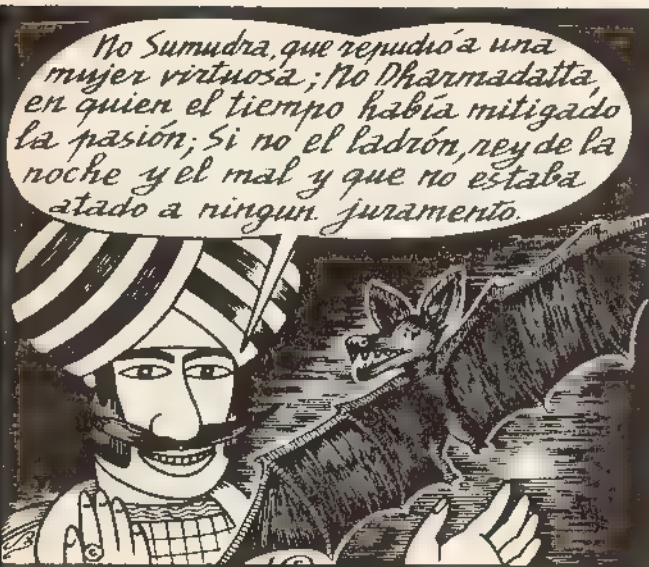 No Sumudra, que repudió a una
mujer virtuosa; No Dharmadatta,
en quien el tiempo había mitigado
la pasión; Si no el ladrón, rey de la
noche y el mal y que no estaba
atado a ningun. juramento.